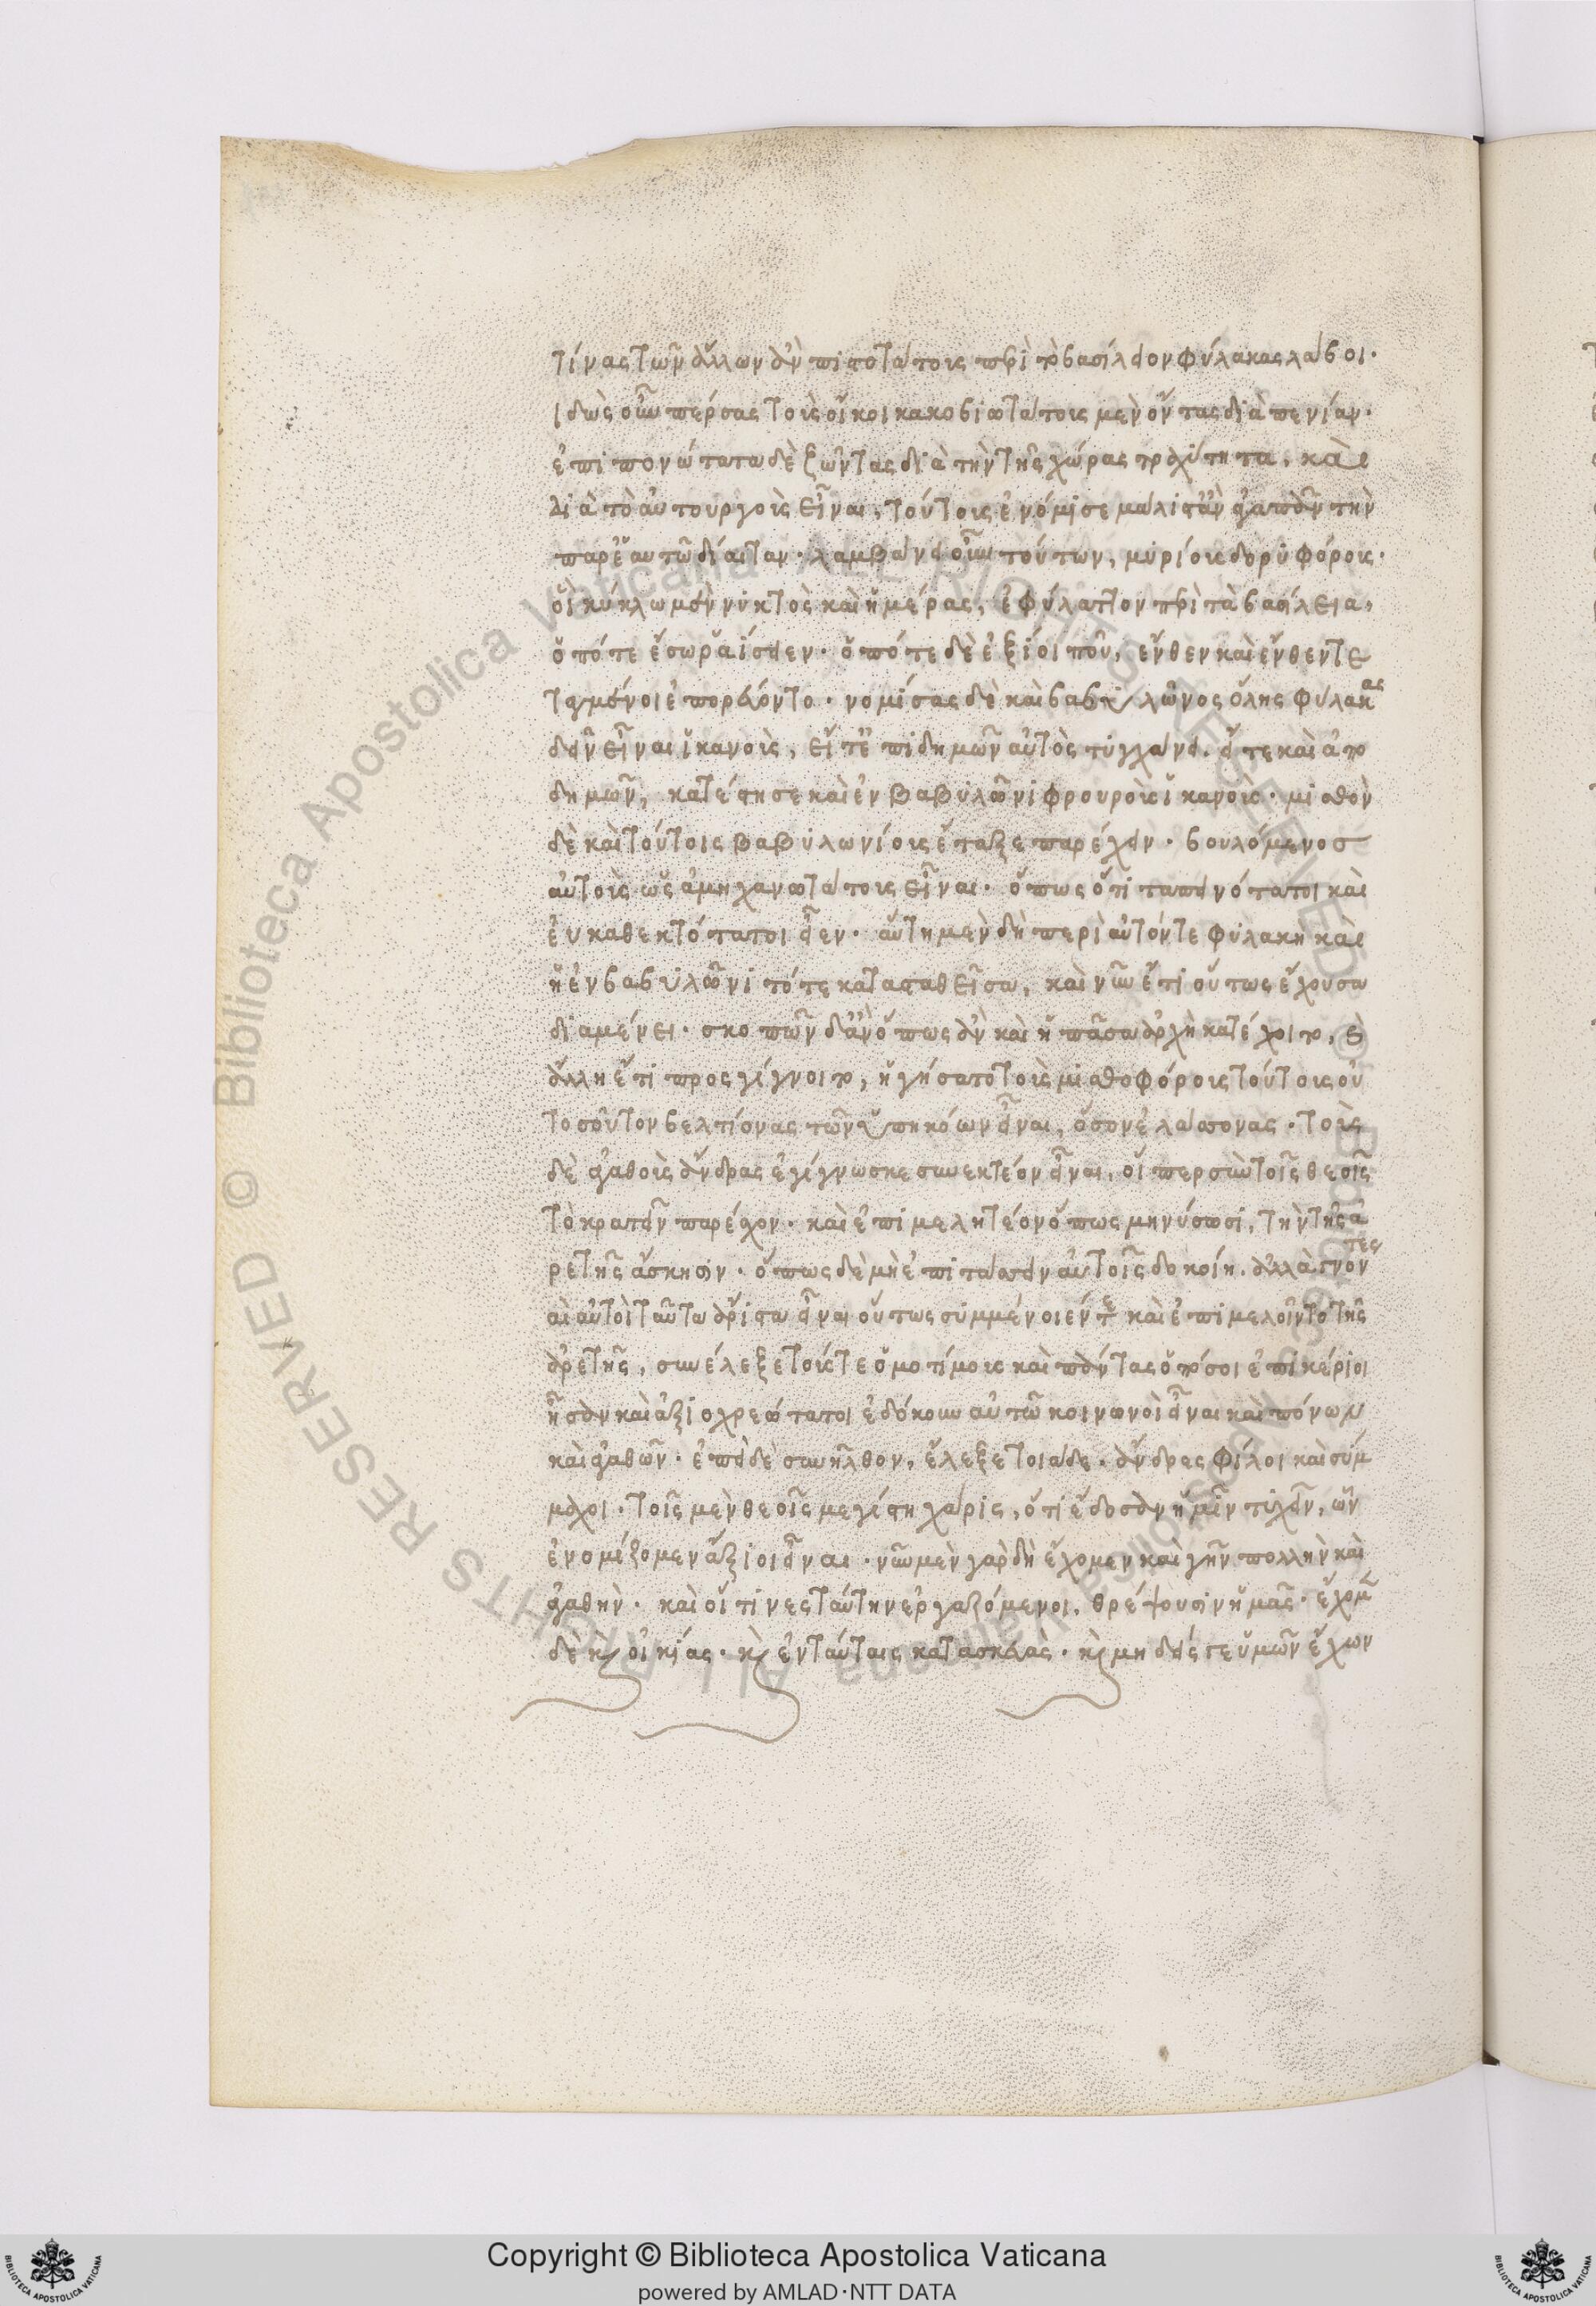 τίνας τῶν ἄλλων ἂν πιστοτάτους περὶ τὸ βασίλειον φύλακας λάβοι·
ἰδὼν οὖν πέρσας τοὺς οἴκοι κακοβιωτάτους μὲν ὄντας διὰ πενίαν·
ἐπιπονώτατα δὲ ζῶντας διὰ τὴν τῆς χώρας τραχύτητα, καὶ
διὰ τὸ αὐτουργοὺς εἶναι, τούτους ἐνόμισε μάλιστ' ἂν ἀγαπᾶν τὴν
παρ' ἑαυτῷ δίαιταν· λαμβάνει οὖν τούτων, μυρίους δορυφόρους·
οἳ κύκλῳ μὲν νυκτὸς καὶ ἡμέρας, ἐφύλαττον περὶ τὰ βασίλεια,
ὁπότε ἔσω χώρας εἴη· ὁπότε δὲ ἐξίοι που, ἔνθεν καὶ ἔνθεν τε
ταγμένοι ἐπορεύοντο· νομίσας δὲ καὶ βαβυλῶνος ὅλης φύλακας
δεῖν εἶναι ἱκανοὺς, εἴτ' ἐπιδημῶν αὐτὸς τυγχάνει. εἴτε καὶ ἀπο
δημῶν, κατέστησε καὶ ἐν βαβυλῶνι φρουροὺς ἱκανούς· μισθὸν
δὲ καὶ τούτοις βαβυλωνίους ἔταξε παρέχειν· βουλόμενος
αὐτοὺς ὡς ἀμηχανωτάτους εἶναι· ὅπως ὅτι ταπεινότατοι καὶ
εὐκαθεκτότατοι εἶεν· αὕτη μὲν δὴ περὶ αὐτόν τε φυλακὴ καὶ
ἡ ἐν βαβυλῶνι τότε κατασταθεῖσα, καὶ νῦν ἔτι οὕτως ἔχουσα
διαμένει· σκοπῶν δ' ἂν ὅπως ἂν καὶ ἡ πᾶσα ἀρχὴ κατέχοιτο, καὶ
ἄλλη ἔτι προσγίγνοιτο, ἡγήσατο τοὺς μισθοφόρους τούτους οὐ
τοσοῦτον βελτίονας τῶν ὑπηκόων εἶναι, ὅσον ἐλάττονας· τοὺς
δὲ ἀγαθοὺς ἄνδρας ἐγίγνωσκε συνεκτέον εἶναι, οἵπερ σὺν τοῖς θεοῖς
τὸ κρατεῖν παρέσχον· καὶ ἐπιμελητέον ὅπως μὴ ἀνήσωσι, τὴν τῆς ἀ
ρετῆς ἄσκησιν· ὅπως δὲ μὴ ἐπιτάττειν αὐτοῖς δοκοίη. ἀλλὰ γνόντες
καὶ αὐτοὶ ταῦτα ἄριστα εἶναι οὕτως συμμένοιέν τε καὶ ἐπιμελοῖντο τῆς
ἀρετῆς, συνέλεξε τούς τε ὁμοτίμους καὶ πάντας ὁπόσοι ἐπικαίριοι
ἦσαν καὶ ἀξιοχρεώτατοι ἐδόκουν αὐτῷ κοινωνοὶ εἶναι καὶ πόνων
καὶ ἀγαθῶν· ἐπεὶ δὲ συνῆλθον, ἔλεξε τοιάδε· ἄνδρες φίλοι καὶ σύμ
μαχοι· τοῖς μὲν θεοῖς μεγίστη χάρις, ὅτι ἔδοσαν ἡμῖν τυχεῖν, ὧν
ἐνομίζομεν ἄξιοι εἶναι· νῦν μὲν γὰρ δὴ ἔχομεν καὶ γῆν πολλὴν καὶ
ἀγαθὴν· καὶ οἵτινες ταύτην ἐργαζόμενοι, θρέψουσιν ἡμᾶς· ἔχομεν
δὲ καὶ οἰκίας· καὶ ἐν ταύταις κατασκευάς· καὶ μηδείς γε ὑμῶν ἔχων
Copyright © Biblioteca Apostolica Vaticana
powered by AMLAD·NTT DATA